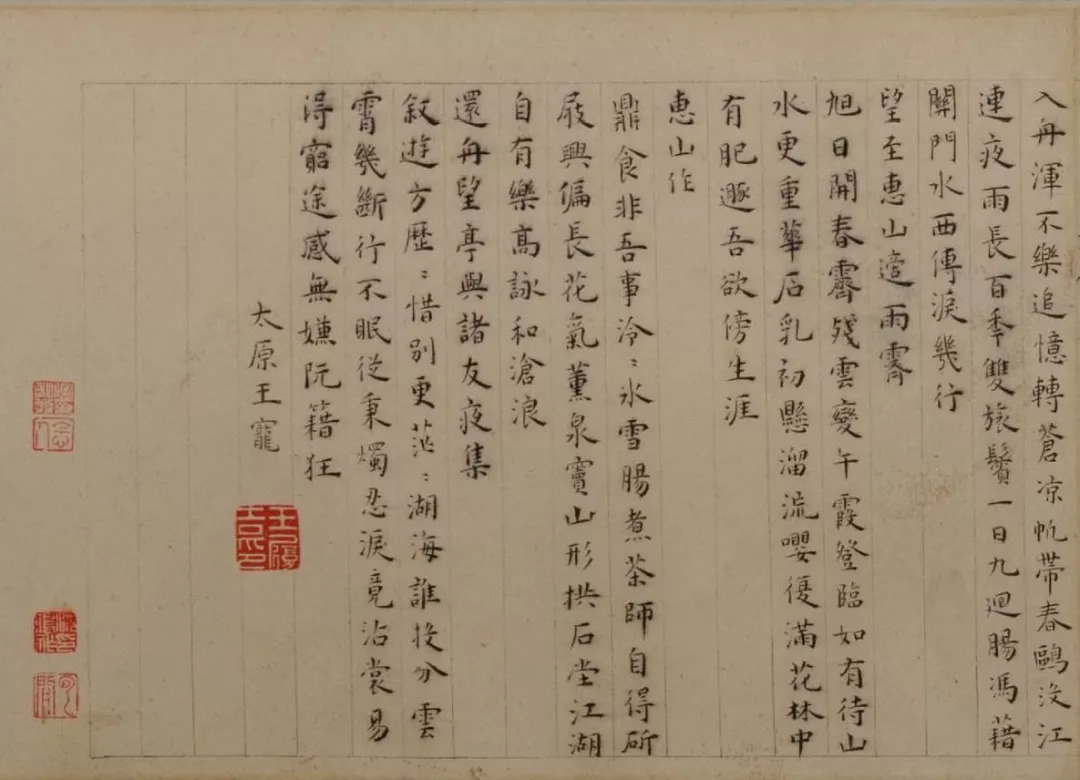 入舟渾不樂追憶轉蒼凉帆帶春鷗沒江
連夜雨長百年雙旅鬢一日九迴腸馮藉
關門水西傳淚幾行
望至惠山遣雨霽
旭日開春霽殘雲變午霞登臨如有待山
水更重華石乳初懸溜流嚶復滿花林中
有肥遯吾欲傍生涯
惠山作
鼎食非吾事泠〻氷雪腸煮茶師自得斫
屐興偏長花氣薰泉竇山形拱石堂江湖
自有樂高詠和滄浪
還舟望亭與諸友夜集
叙遊方歷〻惜别更茫〻湖海誰投分雲
霄幾斷行不眠從秉燭忍淚竟沾裳易
得窮途感無嫌阮籍狂
太原王寵